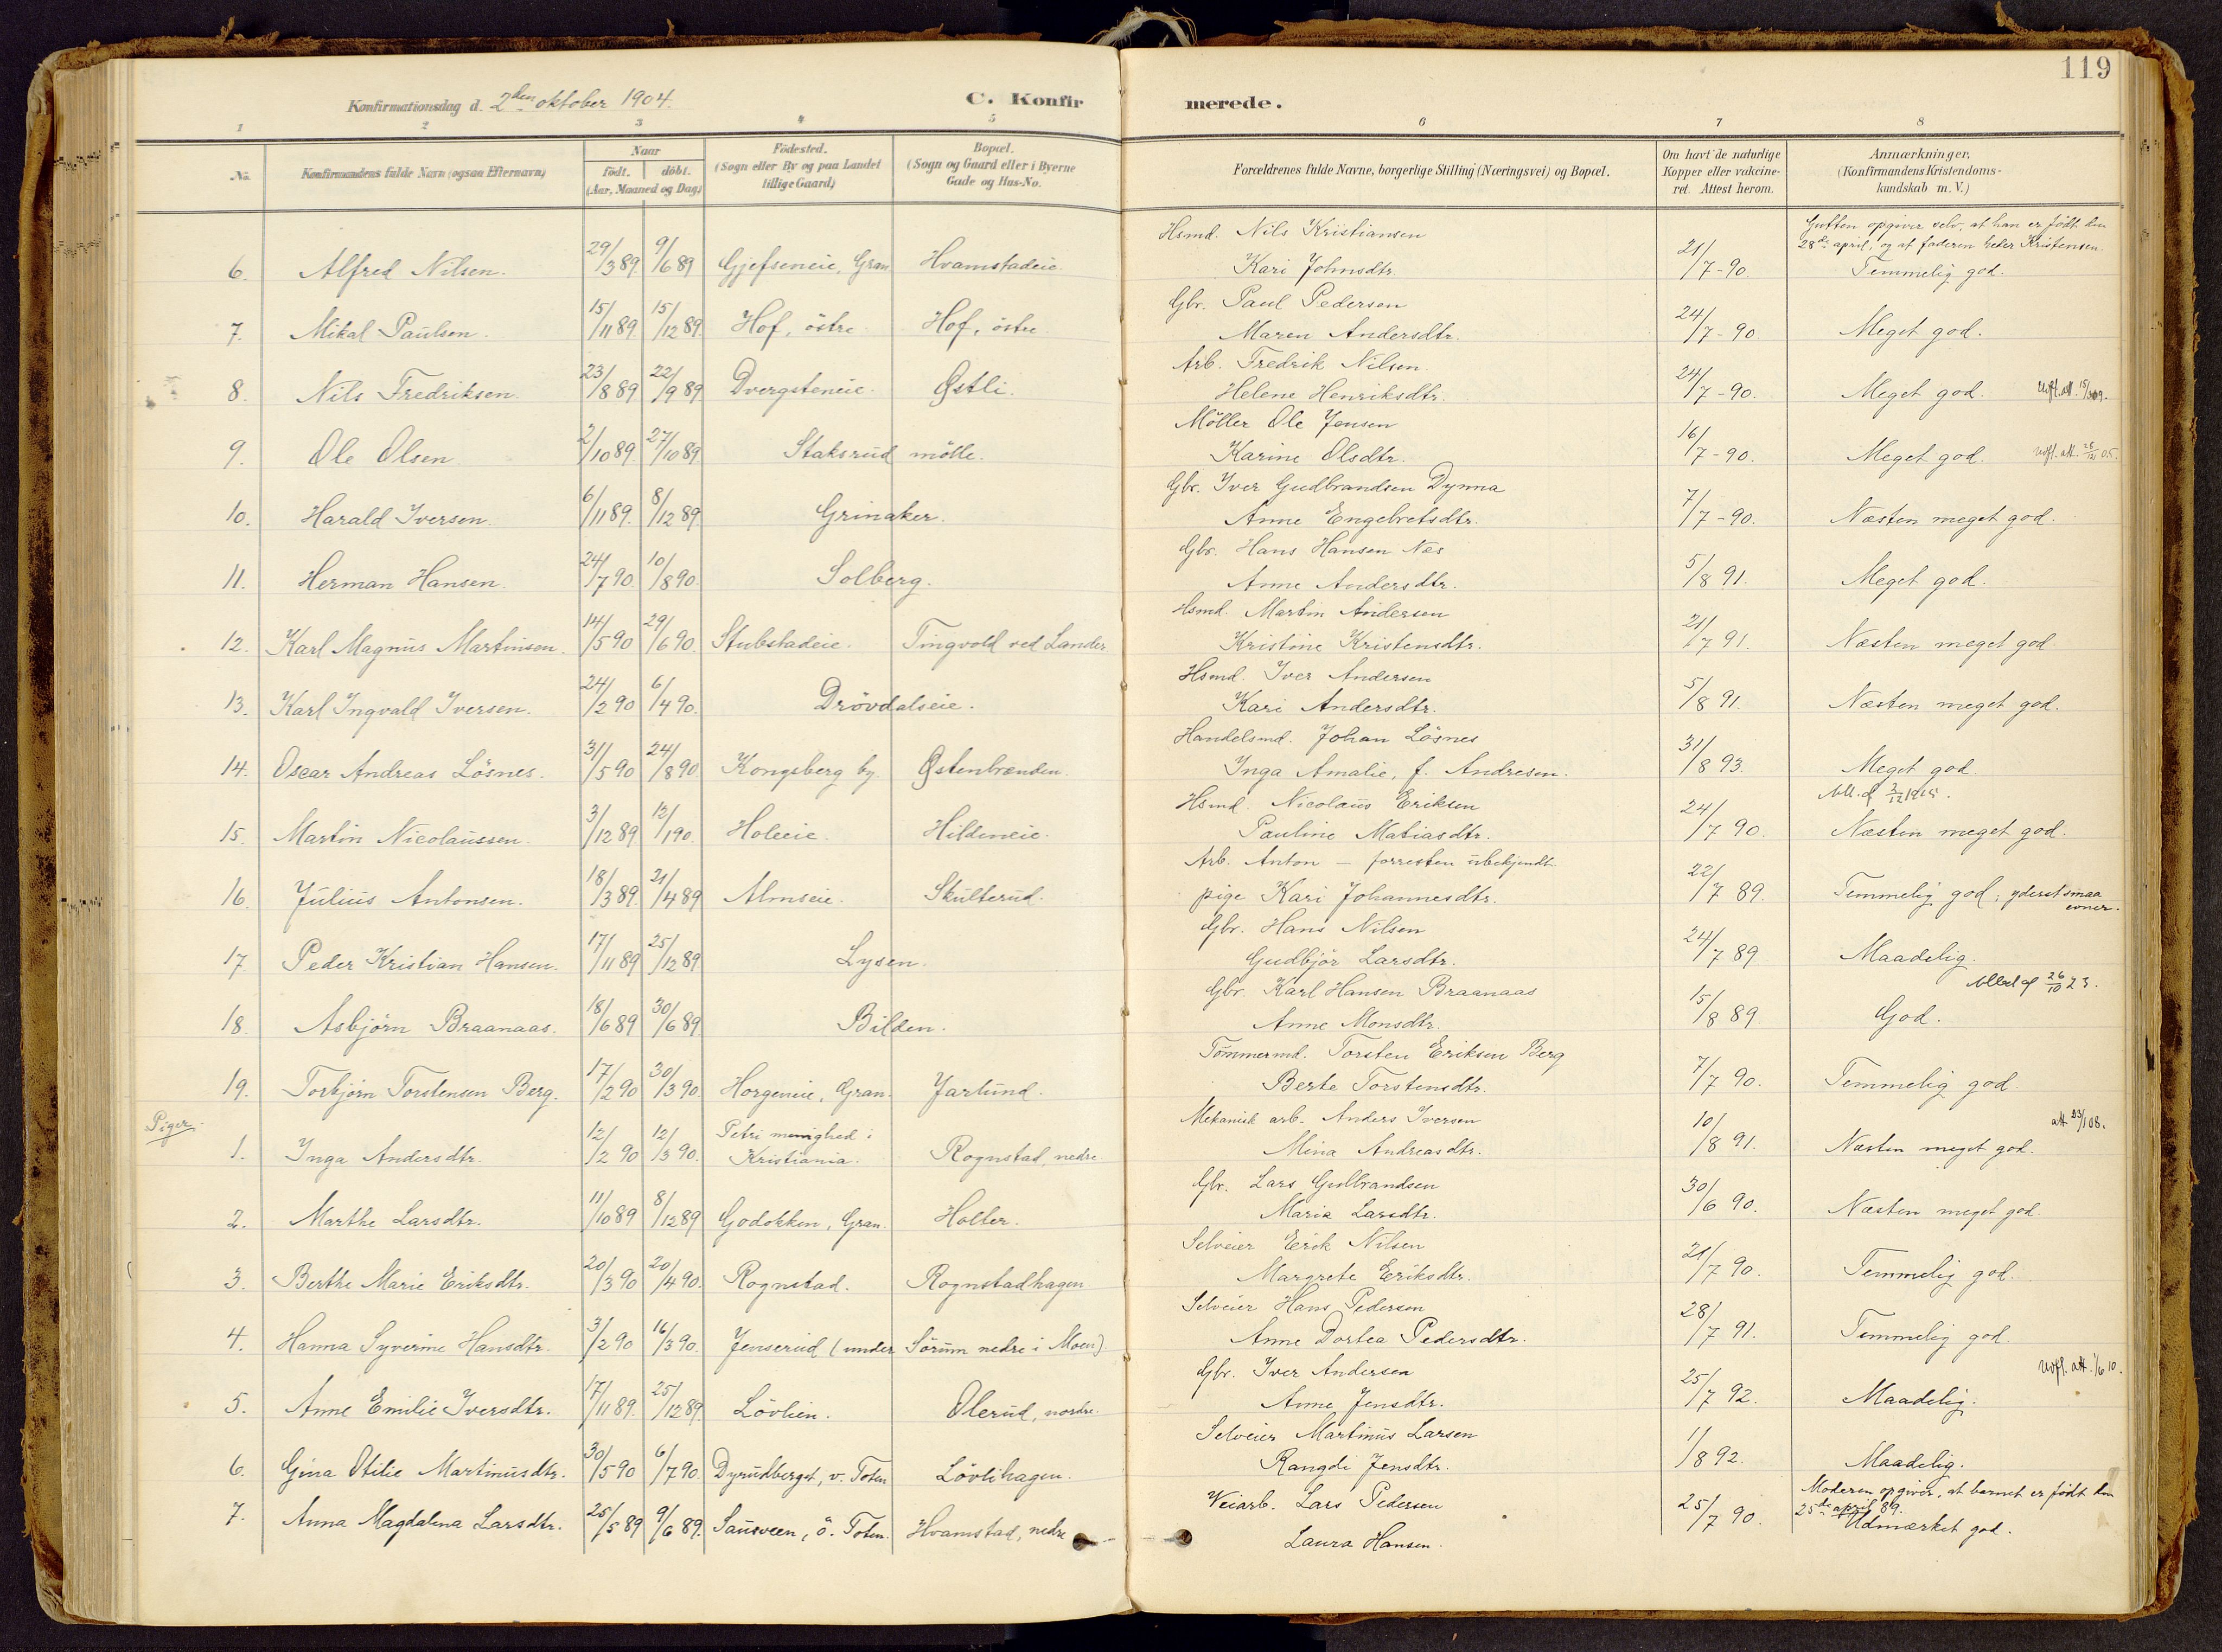 119
Konfirmationsdag d. 2den oktober 1904. C. Konfirmerede.
1 2 3 4 5 6 7 8
No. Konfirmandens fulde Navn (ogsaa Efternavn) Naar født. døbt. (Aar, Maaned og Dag) Fødested. (Sogn eller By og paa Landet tillige Gaard) Bopæl. (Sogn og Gaard eller i Byerne Gade og Hus-No. Forældrenes fulde Navne, borgerlige Stilling (Næringsvei) og Bopæl. Om havt de naturlige Kopper eller vaccineret. Attest herom. Anmærkninger. (Konfirmandens Kristendomskundskab m. V.)
Hsmd. Nils Kristiansen Gutten opgiver selv, at han er født den 28de april, og at faderen heder Kristensen.
6. Alfred Nilsen. 29/3 89. 9/6 89 Gjefseneie, Gran Hvamstadeie. Kari Johnsdtr. 21/7-90. Temmelig god.
Gbr. Paul Pedersen
7. Mikal Paulsen. 15/11 89. 15/12 89 Hof, östre Hof, östre Maren Andersdtr. 24/7-90 Meget god.
Arb. Fredrik Nilsen.
8. Nils Fredriksen. 23/8 89 22/9 89 Dvergsteneie. Østli. Helene Henriksdtr. 24/7-90. Meget god.
Möller Ole Jensen
9. Ole Olsen 2/10 89. 27/10 89 Staksrud mölle. Karine Olsdtr. 16/7-90. Meget god. Udfl. att. 28/12 05.
Gbr. Iver Gudbrandsen Dynna
10. Harald Iversen. 6/11 89. 8/12 89 Grinaker. Anne Engebretsdtr. 7/7-90. Næsten meget god.
Gbr. Hans Hansen Næs
11. Herman Hansen. 24/7 90 10/8 90. Solberg. Anne Andersdtr. 5/8 91. Meget god.
Hsmd. Martin Andersen
12. Karl Magnus Martinsen. 14/5 90 29/6 90. Stubstadeie. Tingvold ved Lander Kristine Kristensdtr. 21/7 91. Næsten meget god
Hsmd. Iver Andersen
13. Karl Ingvald Iversen. 24/2 90 6/4 90. Drövdalseie. Kari Andersdtr. 5/8 91. Næsten meget god.
Handelsmd. Johan Lösnes
14. Oscar Andreas Lösnes. 31/5 90 24/8 90. Kongsberg by. Østenbrænden. Inga Amalie, f. Andresen. 31/8 93. Meget god.
Hsmd. Nicolaus Eriksen
15. Martin Nicolaussen. 3/12 89. 12/1 90. Holeeie. Hildeneie. Pauline Matiasdtr. 24/7 90. Næsten meget god.
Arb. Anton — forresten ubekjendt.
16. Julius Antonsen. 18/3 89. 21/4 89 Almseie. Skulterud. pige Kari Johannesdtr. 22/7 89. Temmelig god; yderst smaa evner.
Gbr. Hans Nilsen
17. Peder Kristian Hansen. 17/11 89 25/12 89 Lysen. Gudbjör Larsdtr. 24/7 89 Maadelig.
Gbr. Karl Hansen Braanaas 26/10 23.
18. Asbjörn Braanaas. 18/6 89 30/6 89 Bilden. Anne Monsdtr. 15/8 89. God.
Tömmermd. Torsten Eriksen Berg
19. Torbjörn Torstensen Berg. 17/2 90 30/3 90. Horgeneie, Gran. Jarlund. Berte Torstensdtr. 7/7 90. Temmelig god.
Piger. Mekanisk arb. Anders Iversen att 23/1 08.
1. Inga Andersdtr. 12/2 90 12/3 90. Petri menighed i Kristiania. Rognstad, nedre Mina Andreasdtr. 10/8 91. Næsten meget god.
Gbr. Lars Gulbrandsen
2. Marthe Larsdtr. 11/10 89 8/12 89 Godokken, Gran. Holter. Marie Larsdtr. 30/6 90. Næsten meget god.
Selveier Erik Nilsen
3. Berthe Marie Eriksdtr. 20/3 90 20/4 90. Rognstad. Rognstadhagen Margrete Eriksdtr. 21/7 90. Temmelig god.
Selveier Hans Pedersen
4. Hanna Syverine Hansdtr. 3/2 90 16/3 90. Jenserud (under Sörum nedre i Moen) Anne Dortea Pedersdtr. 28/7 91. Temmelig god.
Gbr. Iver Andersen Udfl. att. 1/6 10.
5. Anne Emilie Iversdtr. 17/11 89. 25/12 89. Lövlien. Olerud, nordre. Anne Jensdtr. 25/7 92. Maadelig.
Selveier Martinus Larsen
6. Gina Otilie Martinusdtr. 30/5 90 6/7 90. Dyrudberget, v. Toten Lövlihagen. Rangdi Jensdtr. 1/8 92. Maadelig.
Veiarb. Lars Pedersen Moderen opgiver, at barnet er født den 25de april 89.
7. Anna Magdalena Larsdtr. 25/5 89 9/6 89. Sausveen, ö. Toten. Hvamstad, nedre Laura Hansen. 25/7 90. Udmærket god.